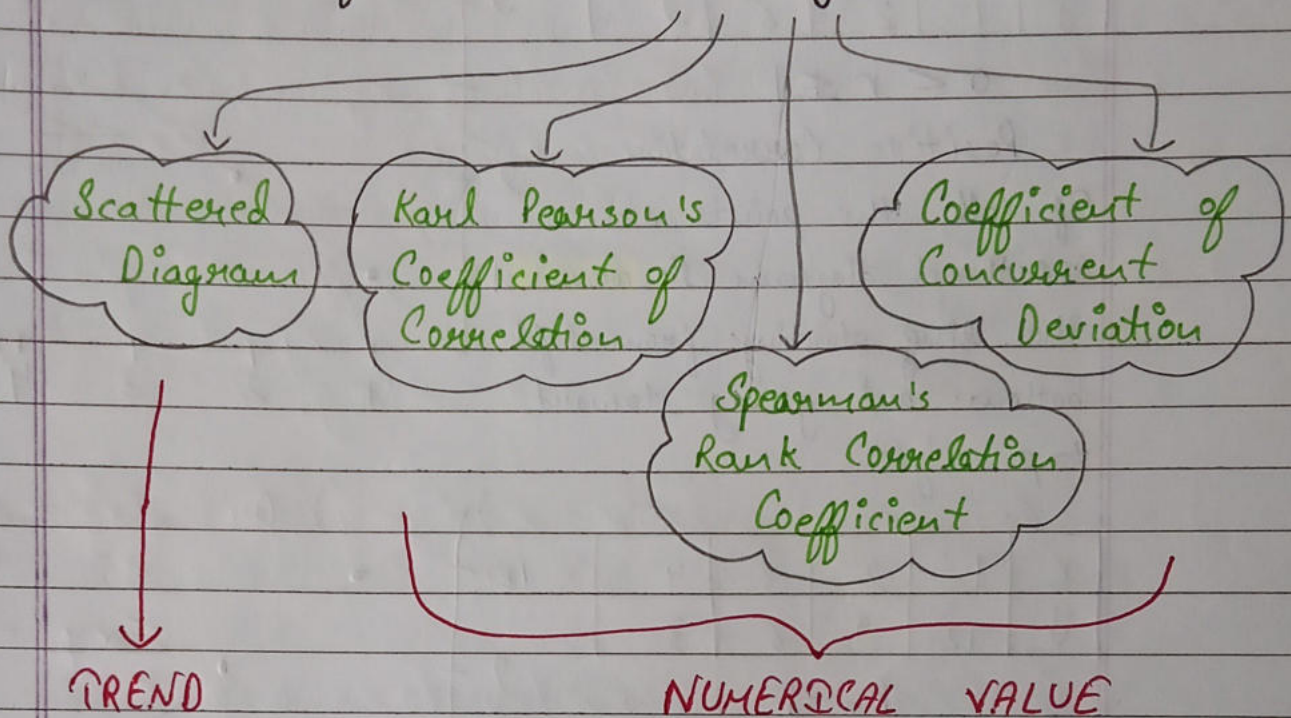 Scattered
Diagram
Karl Pearson's
Coefficient of
Correlation
Spearman's
Rank Correlation
Coefficient
Coefficient of
Concurrent
Deviation
TREND
NUMERICAL VALUE